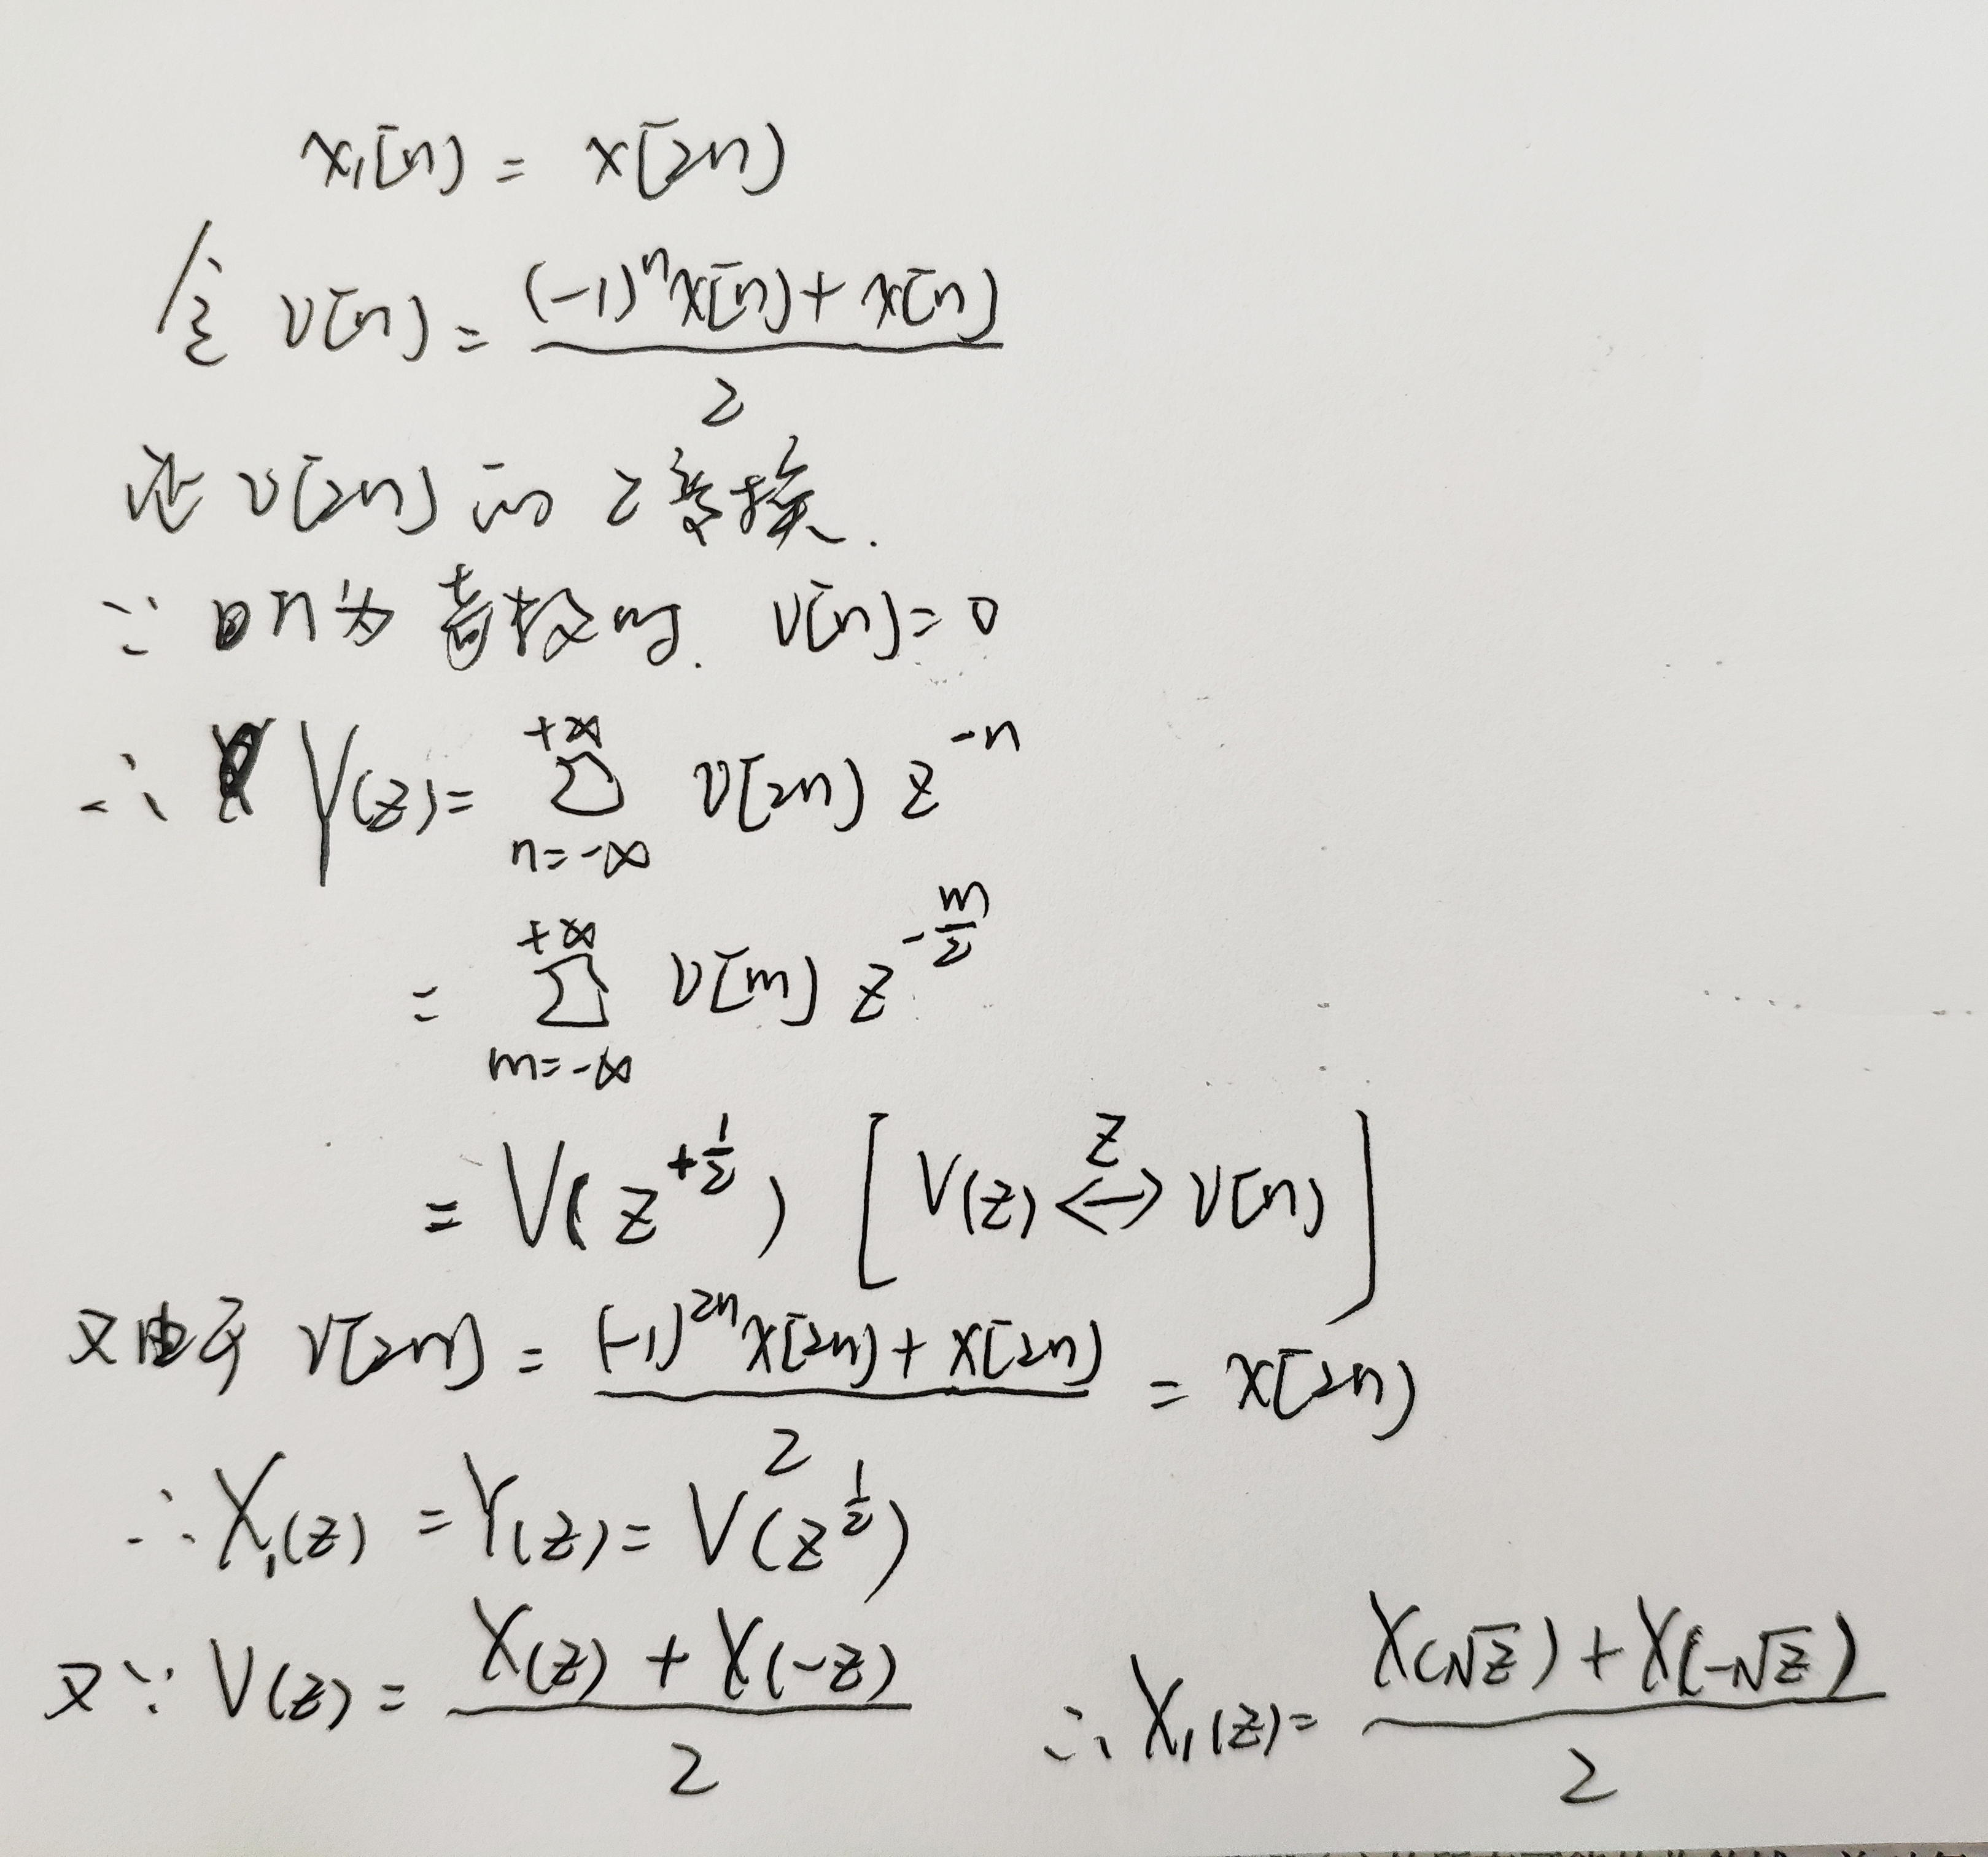 x₁[n] = x[2n]
令 v[n] = ((-1)ⁿx[n] + x[n]) / 2
求 v[2n] 的 z 变换.
∵ n为奇数时. v[n] = 0
∴ Y(z) = ∑_{n=-∞}^{+∞} v[2n] z^{-n}
= ∑_{m=-∞}^{+∞} v[m] z^{-m/2}
= V(z^{+1/2}) [V(z) ↔^{Z} v[n]]
又由于 v[2n] = ((-1)^{2n}x[2n] + x[2n]) / 2 = x[2n]
∴ X₁(z) = Y(z) = V(z^{1/2})
又∵ V(z) = (X(z) + X(-z)) / 2 ∴ X₁(z) = (X(√z) + X(-√z)) / 2